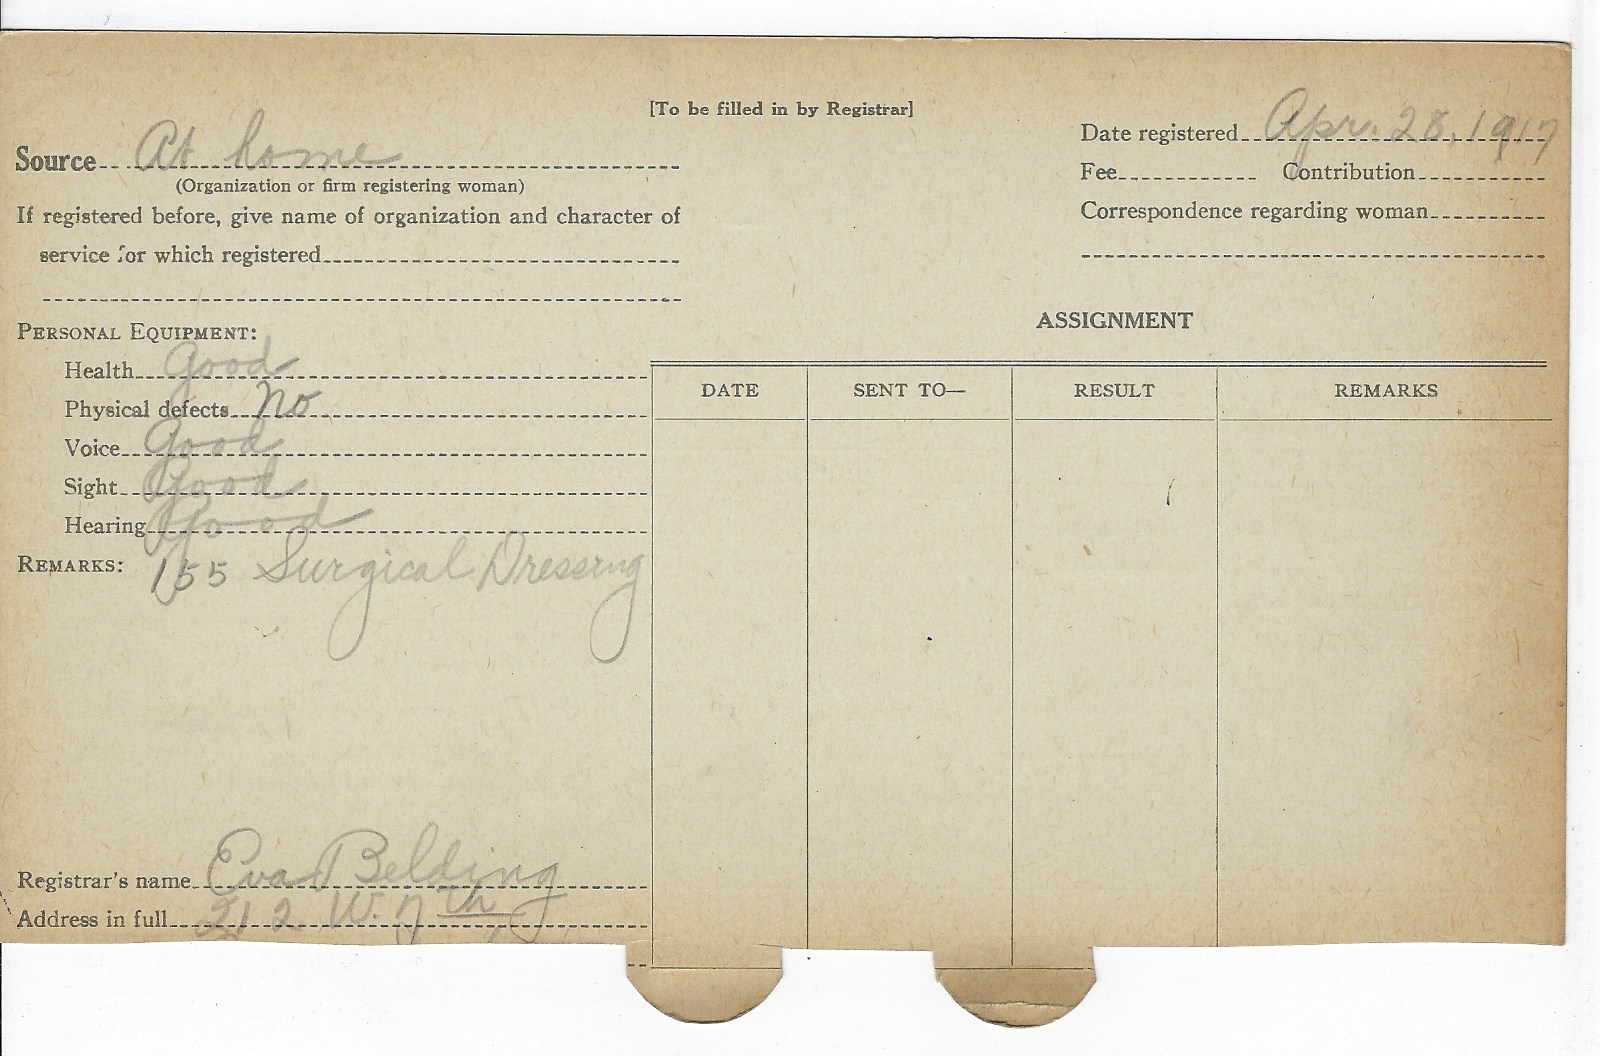 [To be filled in by Registrar]
Source At home
(Organization or firm registering woman)
If registered before, give name of organization and character of
service for which registered
Date registered Apr. 28, 1917
Fee Contribution
Correspondence regarding woman
PERSONAL EQUIPMENT:
Health Good
Physical defects No
Voice Good
Sight Good
Hearing Good
REMARKS: 155 Surgical Dressing
ASSIGNMENT
DATE SENT TO— RESULT REMARKS
Registrar's name Eva Belding
Address in full 212 W. 7th